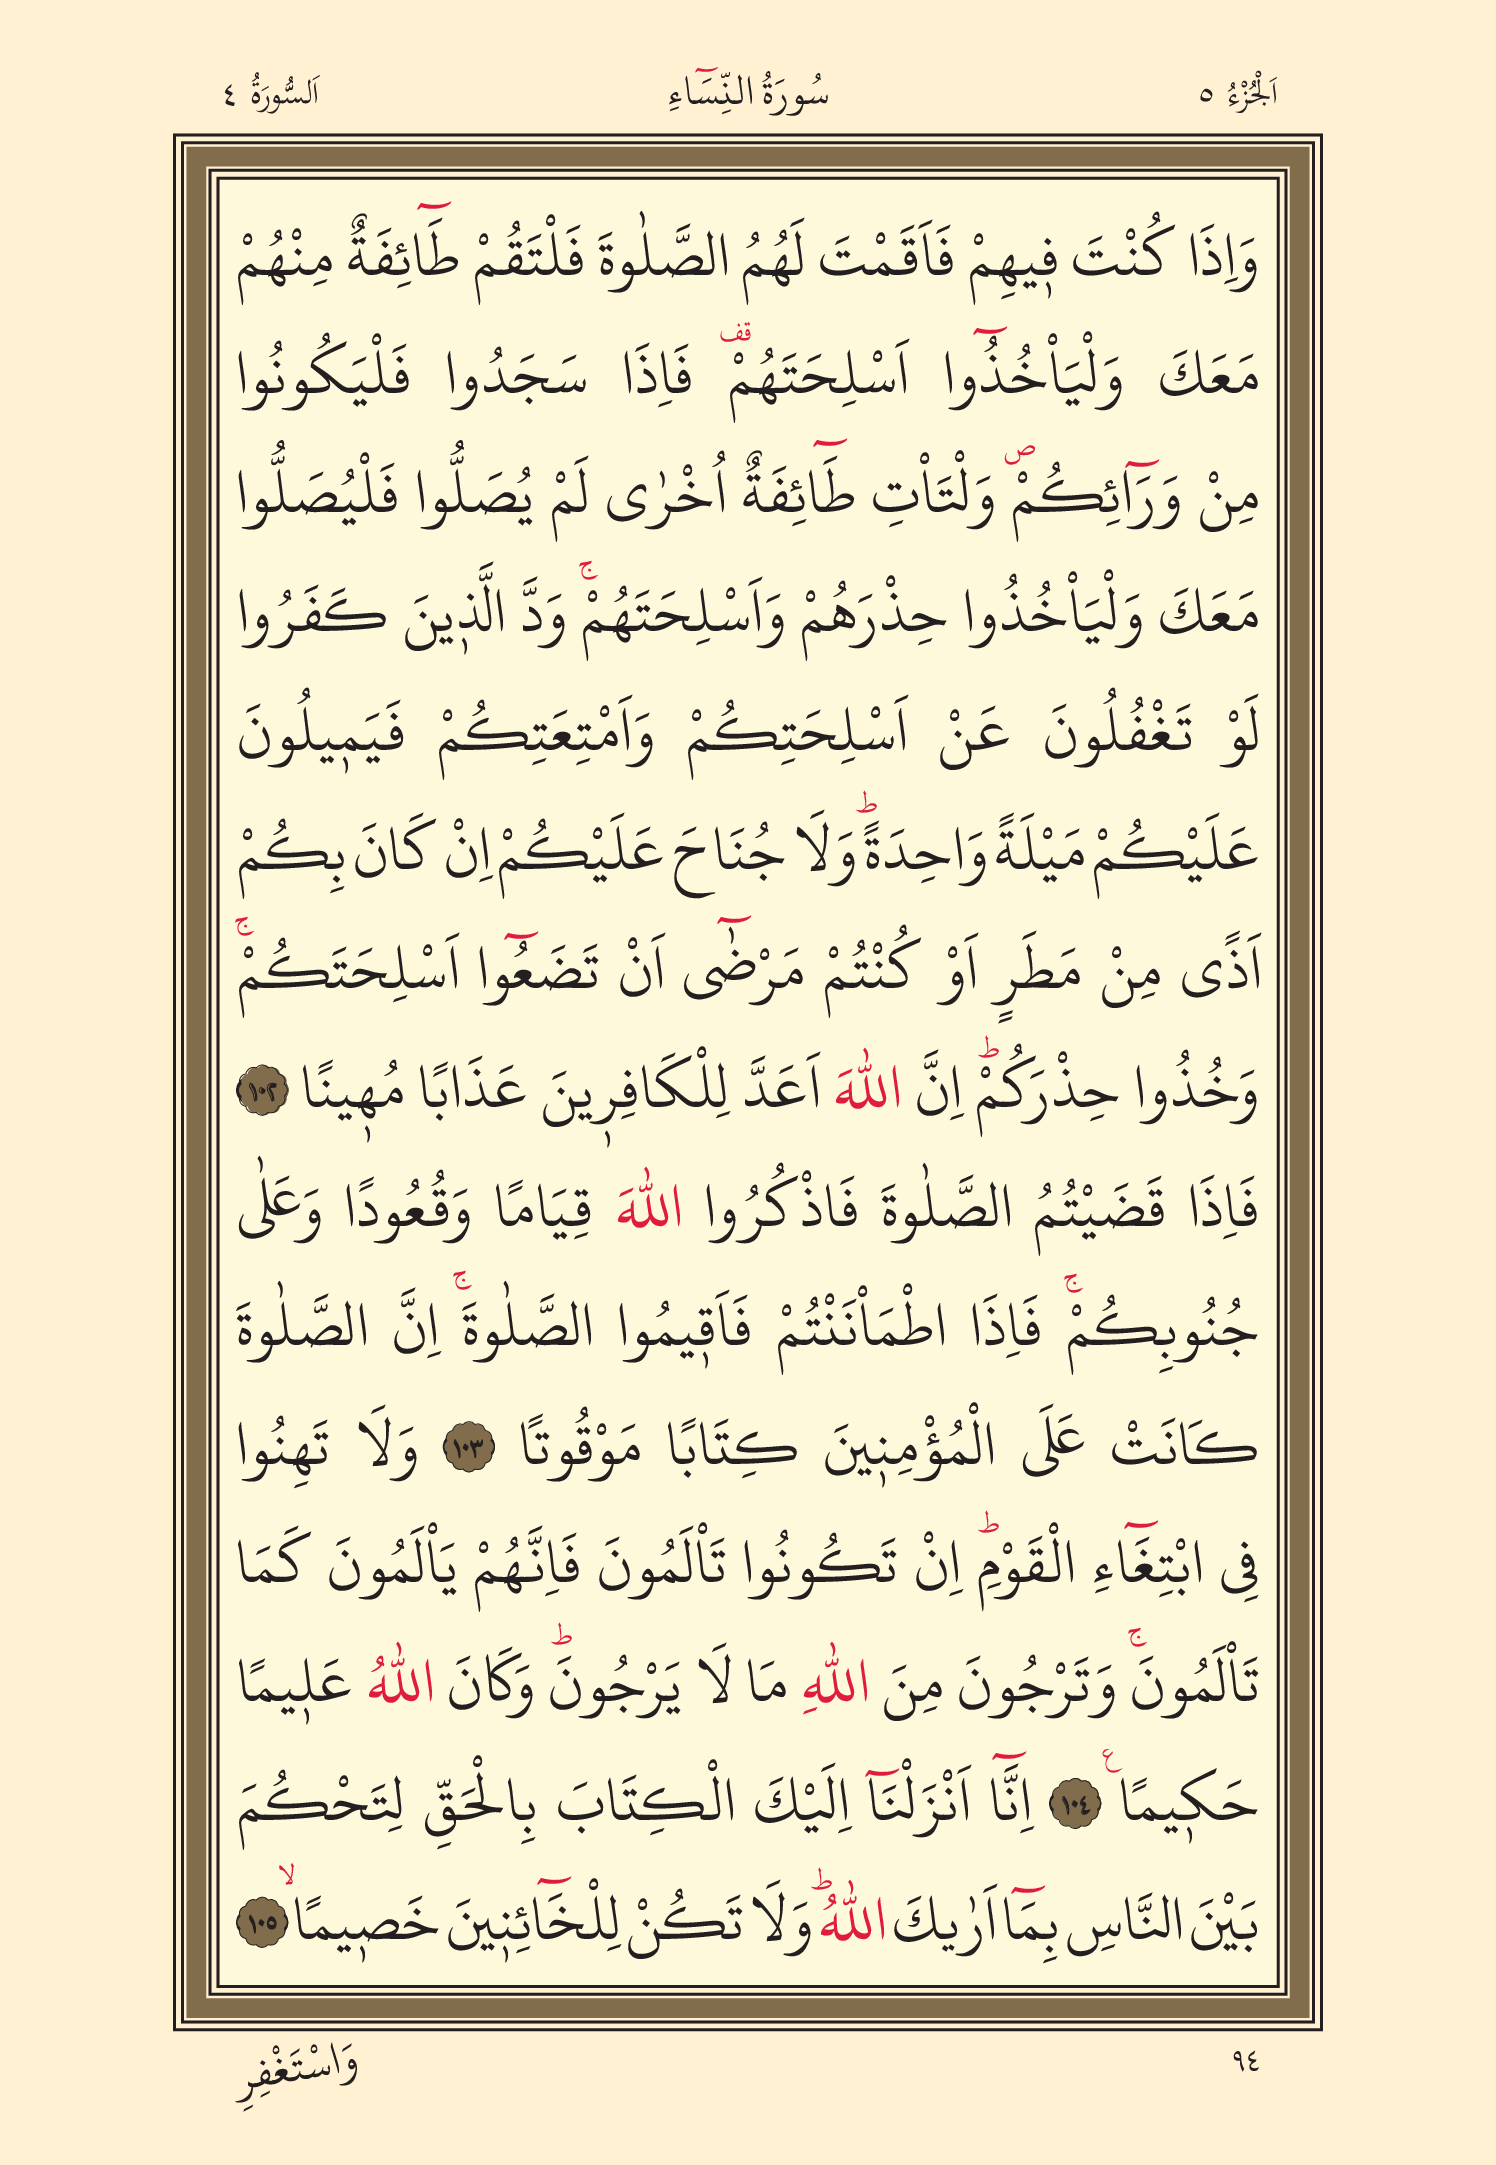 اَلْجُزْءُ ٥ سُورَةُ النِّسَٓاءِ اَلسُّورَةُ ٤
وَاِذَا كُنْتَ ف۪يهِمْ فَاَقَمْتَ لَهُمُ الصَّلٰوةَ فَلْتَقُمْ طَٓائِفَةٌ مِنْهُمْ
مَعَكَ وَلْيَأْخُذُٓوا اَسْلِحَتَهُمْ۠ قف فَاِذَا سَجَدُوا فَلْيَكُونُوا
مِنْ وَرَٓائِكُمْ ص وَلْتَأْتِ طَٓائِفَةٌ اُخْرٰى لَمْ يُصَلُّوا فَلْيُصَلُّوا
مَعَكَ وَلْيَأْخُذُوا حِذْرَهُمْ وَاَسْلِحَتَهُمْۚ وَدَّ الَّذ۪ينَ كَفَرُوا
لَوْ تَغْفُلُونَ عَنْ اَسْلِحَتِكُمْ وَاَمْتِعَتِكُمْ فَيَم۪يلُونَ
عَلَيْكُمْ مَيْلَةً وَاحِدَةًؕ وَلَا جُنَاحَ عَلَيْكُمْ اِنْ كَانَ بِكُمْ
اَذًى مِنْ مَطَرٍ اَوْ كُنْتُمْ مَرْضٰٓى اَنْ تَضَعُٓوا اَسْلِحَتَكُمْۚ
وَخُذُوا حِذْرَكُمْؕ اِنَّ اللّٰهَ اَعَدَّ لِلْكَافِر۪ينَ عَذَابًا مُه۪ينًا ١٠٢
فَاِذَا قَضَيْتُمُ الصَّلٰوةَ فَاذْكُرُوا اللّٰهَ قِيَامًا وَقُعُودًا وَعَلٰى
جُنُوبِكُمْۚ فَاِذَا اطْمَأْنَنْتُمْ فَاَق۪يمُوا الصَّلٰوةَۚ اِنَّ الصَّلٰوةَ
كَانَتْ عَلَى الْمُؤْمِن۪ينَ كِتَابًا مَوْقُوتًا ١٠٣ وَلَا تَهِنُوا
فِي ابْتِغَٓاءِ الْقَوْمِؕ اِنْ تَكُونُوا تَأْلَمُونَ فَاِنَّهُمْ يَأْلَمُونَ كَمَا
تَأْلَمُونَۚ وَتَرْجُونَ مِنَ اللّٰهِ مَا لَا يَرْجُونَؕ وَكَانَ اللّٰهُ عَل۪يمًا
حَك۪يمًا ع ١٠٤ اِنَّٓا اَنْزَلْنَٓا اِلَيْكَ الْكِتَابَ بِالْحَقِّ لِتَحْكُمَ
بَيْنَ النَّاسِ بِمَٓا اَرٰيكَ اللّٰهُؕ وَلَا تَكُنْ لِلْخَٓائِن۪ينَ خَص۪يمًاۙ ١٠٥
٩٤ وَاسْتَغْفِرِ